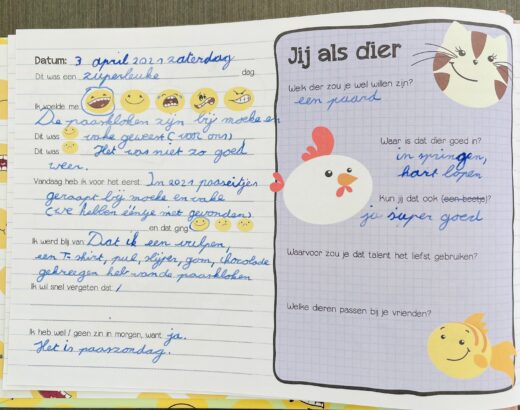 Datum: 3 april 2021 zaterdag
Dit was een superleuke dag.
Ik voelde me
De paasklokken zijn bij moeke en
Dit was vake geweest (voor ons)
Dit was Het was niet zo goed
weer.
Vandaag heb ik voor het eerst: In 2021 paaseitjes
geraapt bij moeke en vake
(we hebben ééntje niet gevonden)
en dat ging
Ik werd blij van Dat ik een vulpen,
een T-shirt, pul, slijper, gom, chocolade
gekregen heb van de paasklokken
Ik wil snel vergeten dat /
Ik heb wel / geen zin in morgen, want ja.
Het is paaszondag.
Jij als dier
Welk dier zou je wel willen zijn?
een paard
Waarin is dat dier goed in?
in springen,
hart lopen
Kun jij dat ook (een beetje)?
ja super goed
Waarvoor zou je dat talent het liefst gebruiken?
Welke dieren passen bij je vrienden?